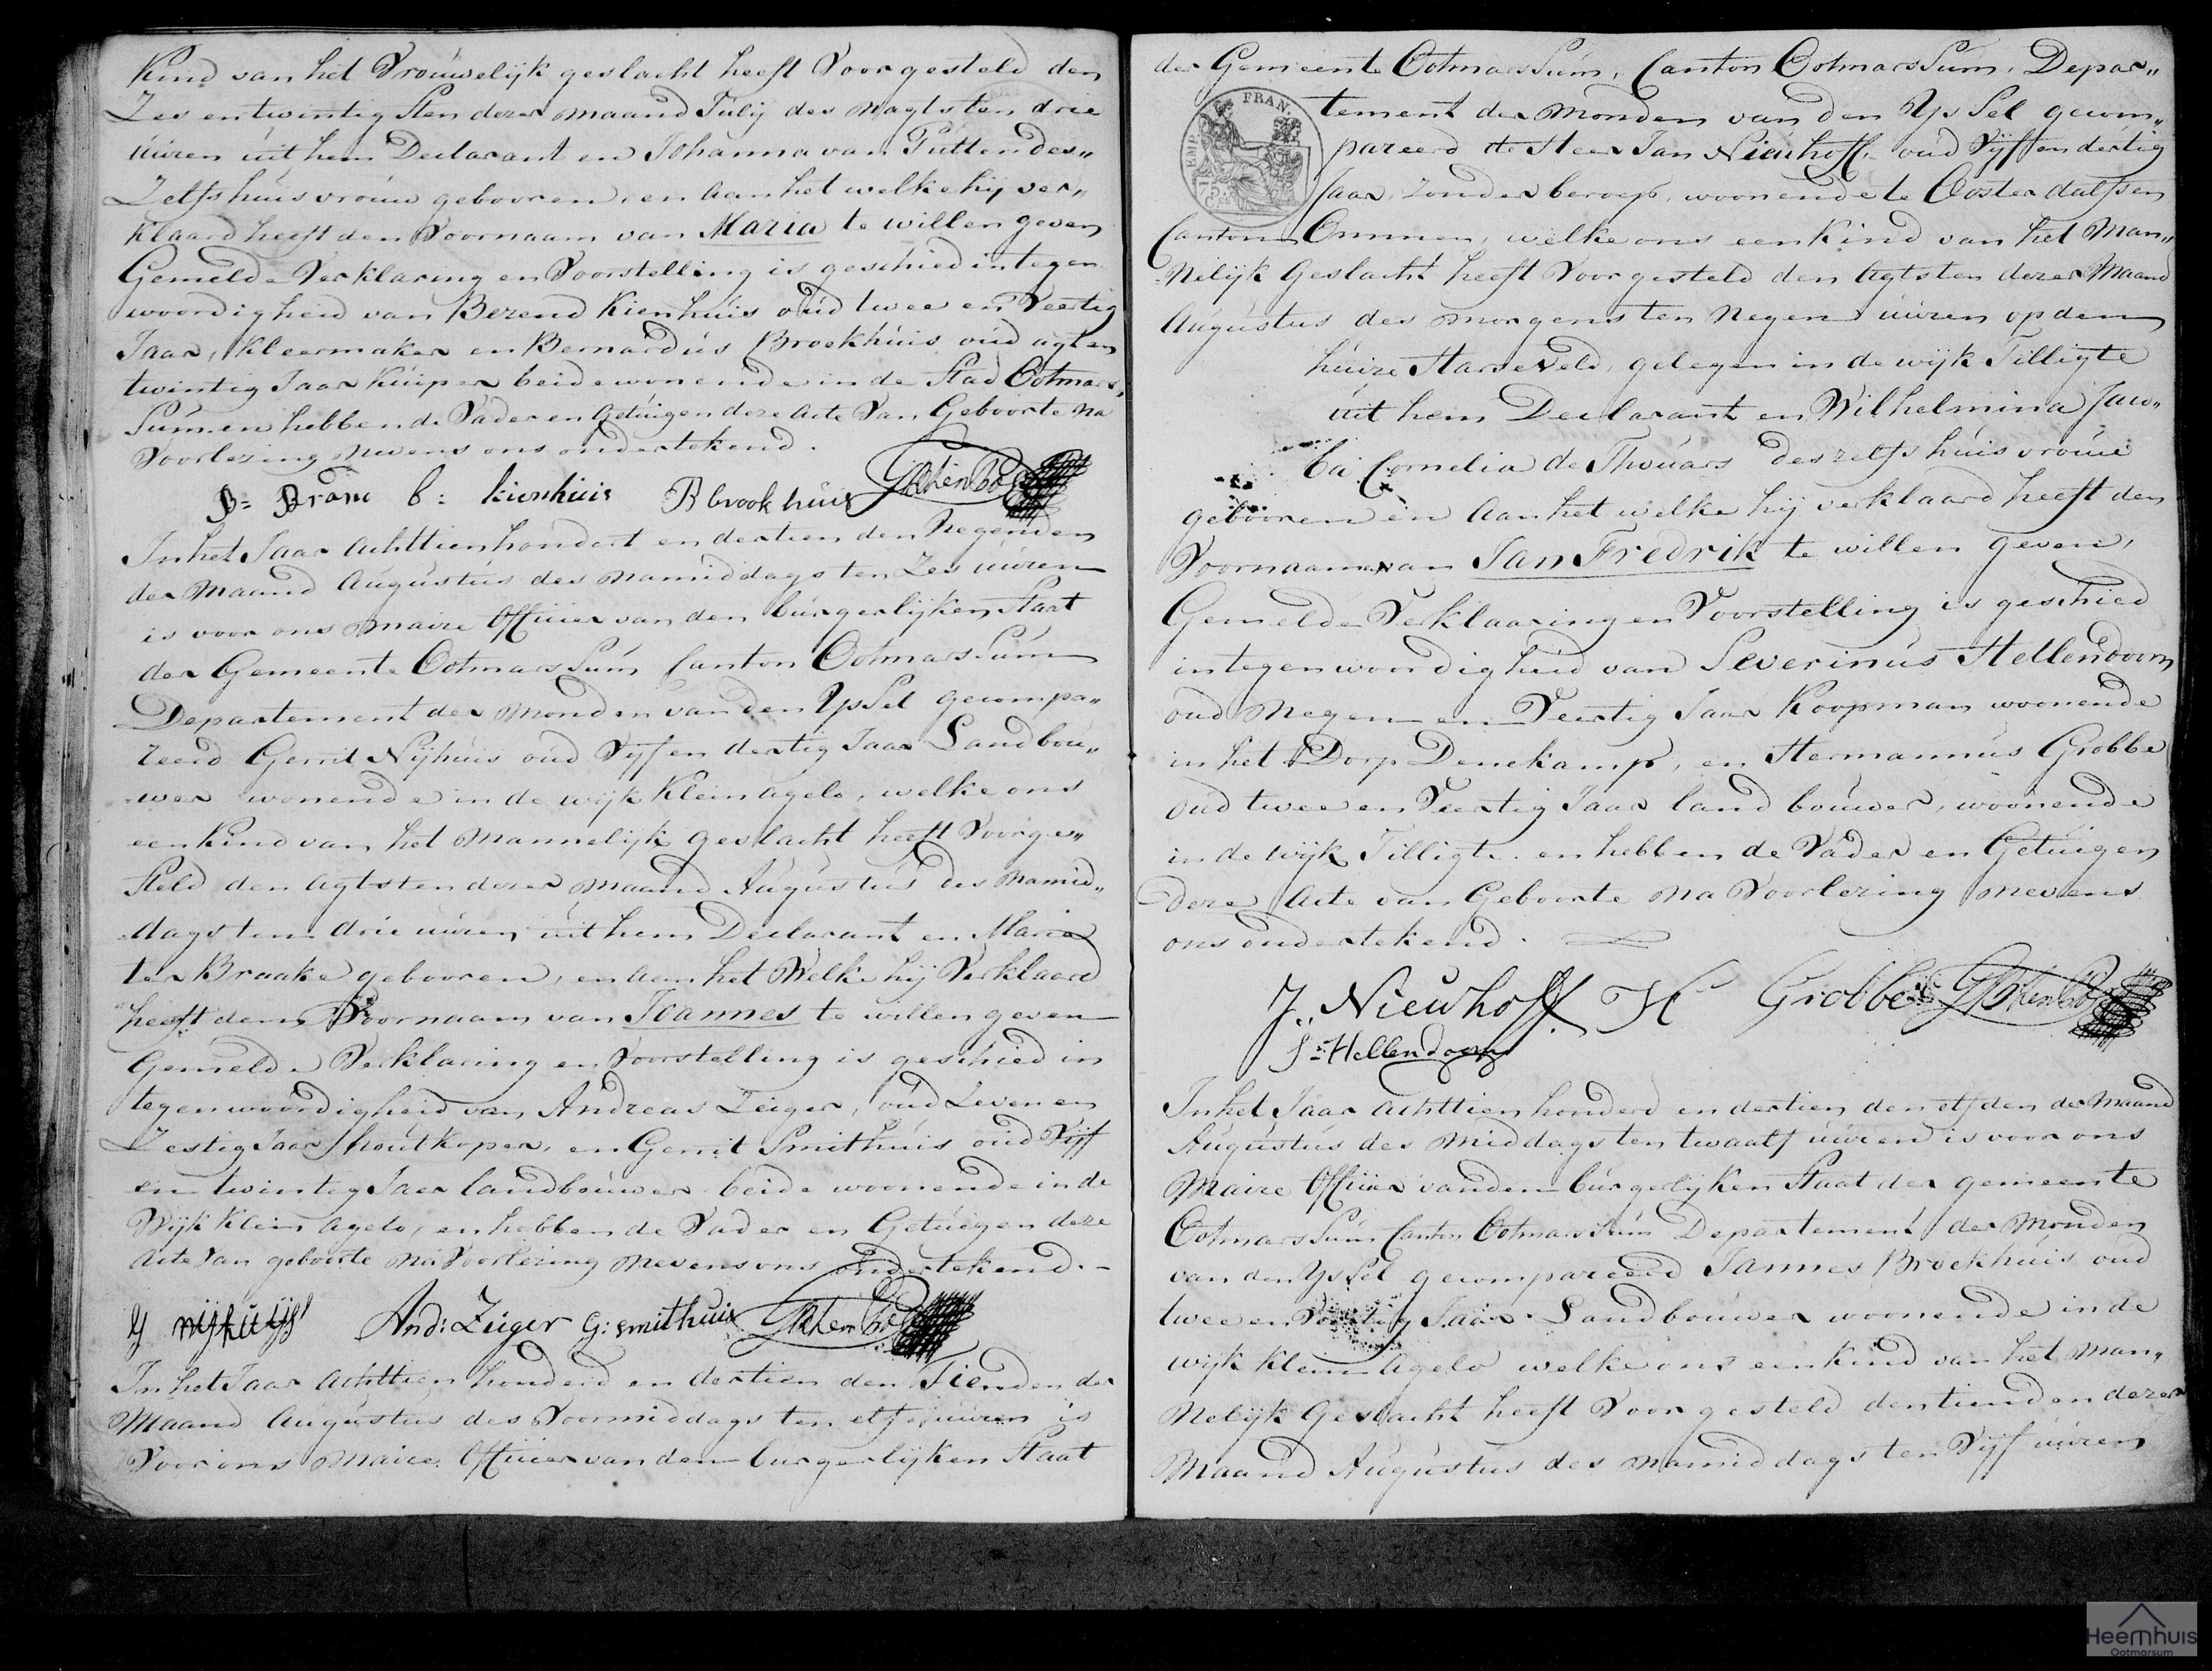 Kind van het Vrouwelijk geslacht heeft Voorgesteld den
Zes en twintigsten dezer maand Julij des nagts ten drie
uuren uit hem Declarant en Johanna van Putten des„
Zelfs huisvrouw gebooren, en aan het welke hij ver„
klaard heeft den Voornaam van Maria te willen geven
Gemelde Verklaring en Voorstelling is geschied in tegen
woordigheid van Berend Kienhuis oud twee en Veertig
Jaar, Kleermaker en Bernardus Broekhuis oud agt en
twintig Jaar Kuiper beide wonende in de Stad Ootmars„
Sum en hebben de Vader en Getuigen deze Acte Van Geboorte na
Voorlezing nevens ons ondertekend.
B= Bram b: kienhuis B brookhuis
In het Jaar Achttien hondert en dertien den Negenden
der Maand Augustus des namiddags ten Zes uuren
is voor ons Maire Officier van den burgerlijken Staat
der Gemeente OotmarsSum Canton OotmarsSum
Departement der Monden van den YsSel gecompa„
reerd Gerrit Nijhuis oud Vijf en dertig Jaar Landbou„
wer wonende in de wijk Klein agelo, welke ons
een Kind van het Mannelijk geslacht heeft Voorge„
Steld den Agtsten dezer Maand Augustus des namid„
dags ten drie uuren uit hem Declarant en Maria
ter Braake gebooren, en aan het Welke hij Verklaard
heeft den Voornaam van Joannes te willen geven
Gemelde Verklaring en Voorstelling is geschied in
tegenwoordigheid van Andreas Zeiger, oud Zeven en
Zestig Jaar houtkoper, en Gerrit Smithuis oud Vijf
en twintig Jaer landbouwer beide woonende in de
Wijk Klein Agelo, en hebben de Vader en Getuigen deze
Acte Van geboorte na Voorlezing nevens ons ondertekend.
G nijhuijs And: Zeiger G: smithuis
In het Jaar Achttien honderd en dertien den Tienden der
Maand Augustus des Voormiddags ten elf uuren is
Voor ons Maire Officier van den burgerlijken Staat
der Gemeente OotmarsSum, Canton OotmarsSum, Depar„
EMP. FRAN.
75. C.
tement der Monden van den YsSel gecom„
pareerd de Heer Jan Nieuhoff, oud Vijf en dertig
Jaar, zonder beroep, woonende te Oosterdalfsen
Canton Ommen, welke ons een Kind van het Man„
Nelijk Geslacht heeft Voorgesteld den Agtsten dezer Maand
Augustus des morgens ten Negen uuren op den
huize Harseveld, gelegen in de wijk Tilligte
uit hem Declarant en Wilhelmina Jaco„
ba Cornelia de Thouars deszelfs huisvrouw
gebooren en aan het welke hij verklaard heeft den
Voornaam van Jan Fredrik te willen geven,
Gemelde Verklaaring en Voorstelling is geschied
in tegenwoordigheid van Severinus Hellendoorn
oud Negen en Veertig Jaar Koopman woonende
in het Dorp Denekamp, en Hermannus Grobbe
oud twee en Veertig Jaar landbouwer, woonende
in de Wijk Tilligte. en hebben de Vader en Getuigen
deze Acte van Geboorte na Voorlezing nevens
ons ondertekend.
J. Nieuhoff. H Grobbe
S= Hellendoorn
In het Jaar Achttien honderd en dertien den elfden der Maand
Augustus des Middags ten twaalf uuren is voor ons
Maire Officier van den burgerlijken Staat der gemeente
OotmarsSum Canton OotmarsSum Departement der Monden
van den YsSel gecompareerd Jannes Broekhuis oud
twee en Jaar Landbouwer woonende in de
wijk Klein Agelo welke ons een Kind van het Man„
Nelijk Geslacht heeft Voorgesteld den tienden dezer
Maand Augustus des namiddags ten Vijf uuren
Heemhuis
Ootmarsum